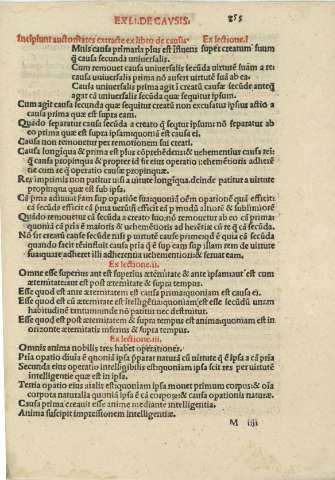 EX LI. DE CAVSIS. 855
Incipiunt auctoritates extracte ex libro de causis. Ex lectione.I
Mnis causa primaria plus est influens super creatum suum
q̃ causa secunda universalis.
Cum removet causa universalis secũda virtutẽ suam a re:
causa universalis prima nõ aufert virtutẽ suã ab ea.
Causa universalis prima agit ĩ creatũ causę secũdę anteq̃
agat cã universalis secũda quę sequitur ipsum.
Cum agit causa secunda quę sequitur creatũ non excusatur ipsius actio a
causa prima quę est supra eam.
Quãdo separatur causa secũda a creato q̃ seqtur ipsum: nõ separatur ab
eo prima quę est supra ipsam: quoniã est causa ei.
Causa non removetur per remotionem sui creati.
Causa longiqua & prima est plus cõprehẽdens: & vehementius causa rei:
q̃ causa propinqua & propter id fit eius operatio vehemẽtioris adherẽ
tię cum re q̃ operatio causę propinquę.
Res imprimis non patitur nisi a virtute longiqua. deinde patitur a virtute
propinqua quę est sub ipsa.
Cã pma adiuvat
supra eam
Quãdo removetur cã secũda a creato suo: nõ removetur ab eo cã prima:
quoniã cã prĩa ẽ maioris & vehemẽtioris adherẽtię cũ re q̃ cã secũda.
Nõ fit creatũ causę secũdę nisi p virtutẽ causę prime
quando facit rẽ influit causa pria q̃ ẽ sup eam sup illam rem de virtute
suaquare adheret illi adherentia vehementiori: & servat eam.
Ex lectione.ii.
Omne esse superius aut est superius æternitate & ante ipsam: aut est cum
æternitate: aut est post æternitatem & supra tempus.
Esse quod est ante æternitatem est causa prima: quoniam est causa ei.
Esse quod est cũ æternitate est ĩtelligẽtia: quoniam est esse secũdũ unam
habitudinẽ: unde nõ patitur nec destruitur.
Esse quod est post æternitatem & supra tempus est anima: quoniam est in
orizonte æternitatis inferius & supra tempus.
Ex lectione.iii.
Omnis anima nobilis tres habet operationes.
Pria opatio divĩa ẽ quoniã ipsa pparat naturã cũ virtute q̃ ẽ ipsa a cã pria
Secunda eius operatio intelligibilis est: quoniam ipsa scit res per virtutẽ
intelligentię quę est in ipsa.
Tertia opatio eius aialis est: quoniam ipsa movet primum corpus: & oĩa
corpora naturalia: quoniã ipsa ẽ cã corporis: & causa opationis naturæ.
Causa prima creavit esse animę mediante intelligentia.
Anima suscipit impressionem intelligentiæ.
M iiij